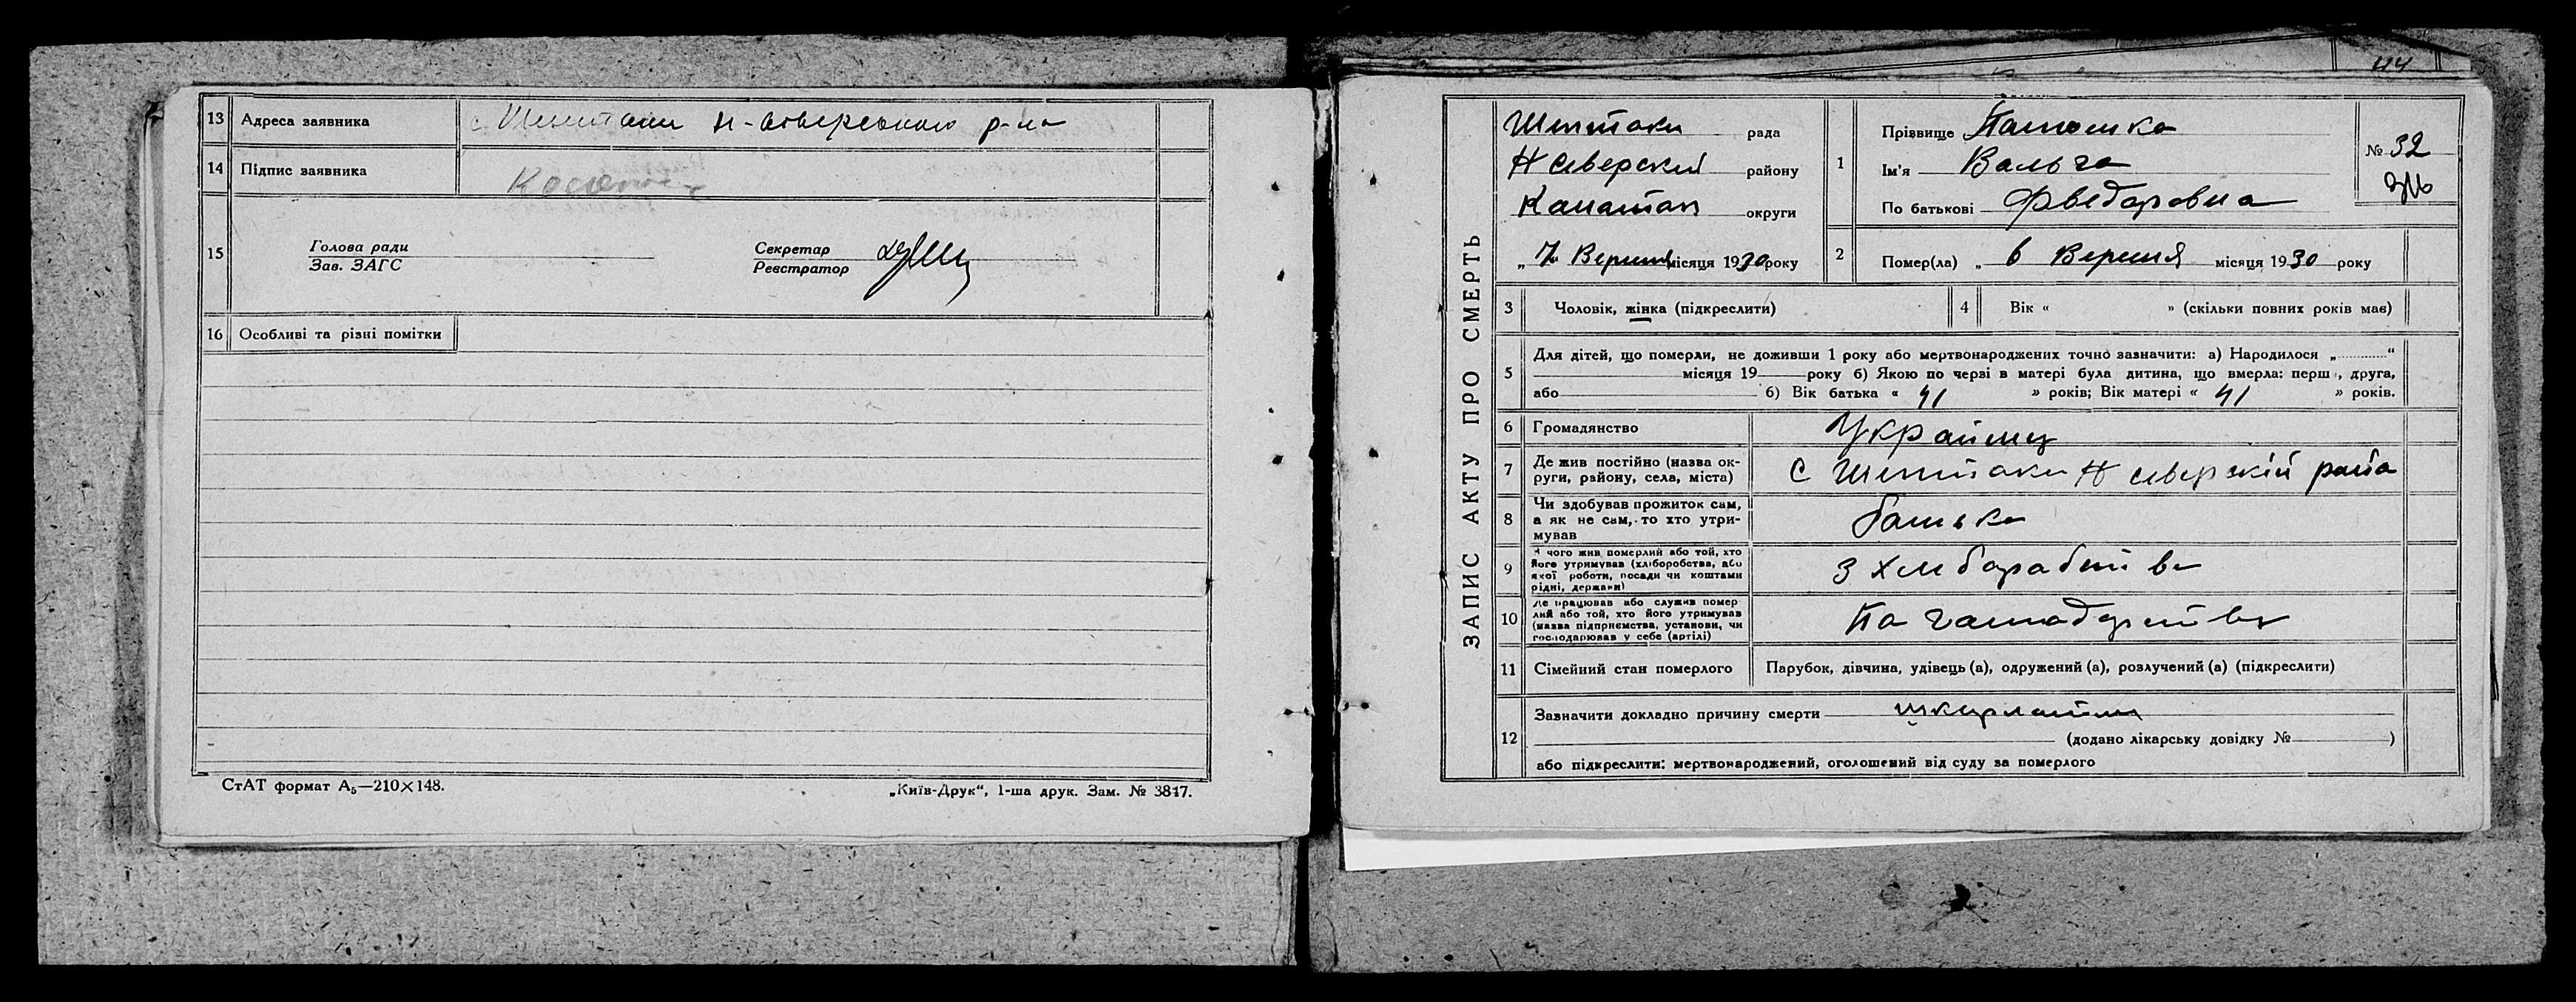 13 Адреса заявника с Шептаки Н-Сіверського р-на
14 Підпис заявника
15 Голова ради
Зав. ЗАГС
Секретар
Реєстратор
16 Особливі та різні помітки
СтАТ формат А₅—210×148.
„Київ-Друк“, 1-ша друк. Зам. № 3847.
44
ЗАПИС АКТУ ПРО СМЕРТЬ
Шептаки рада
Н Северский району
Канатоп округи
„ 7 Верисня місяця 1930 року
1 Прізвище
Ім'я
По батькові Фведоровна
№ 32
2 Помер(ла) „ 6 Версня місяця 1930 року
3 Чоловік, жінка (підкреслити)
4 Вік « » (скільки повних років має)
5 Для дітей, що померли, не доживши 1 року або мертвонароджених точно зазначити: а) Народилося „ “
місяця 19 року б) Якою по черзі в матері була дитина, що вмерла: перш , друга,
або б) Вік батька « 41 » років; Вік матері « 41 » років.
6 Громадянство Украйнец
7 Де жив постійно (назва ок-
руги, району, села, міста) С Шептаки Н Северский
8 Чи здобував прожиток сам,
а як не сам, то хто утри-
мував батько
9 З чого жив померлий або той, хто
його утримував (хліборобства, або
якої роботи, посади чи коштами
рідні, держави) З хлебаробства
10 Де працював або служив помер
лий або той, хто його утримував
(назва підприємства, установи, чи
господарював у себе (артілі)
11 Сімейний стан померлого Парубок, дівчина, удівець (а), одружений (а), розлучений (а) (підкреслити)
12 Зазначити докладно причину смерти шкарлатина
(додано лікарську довідку № )
або підкреслити: мертвонароджений, оголошений від суду за померлого